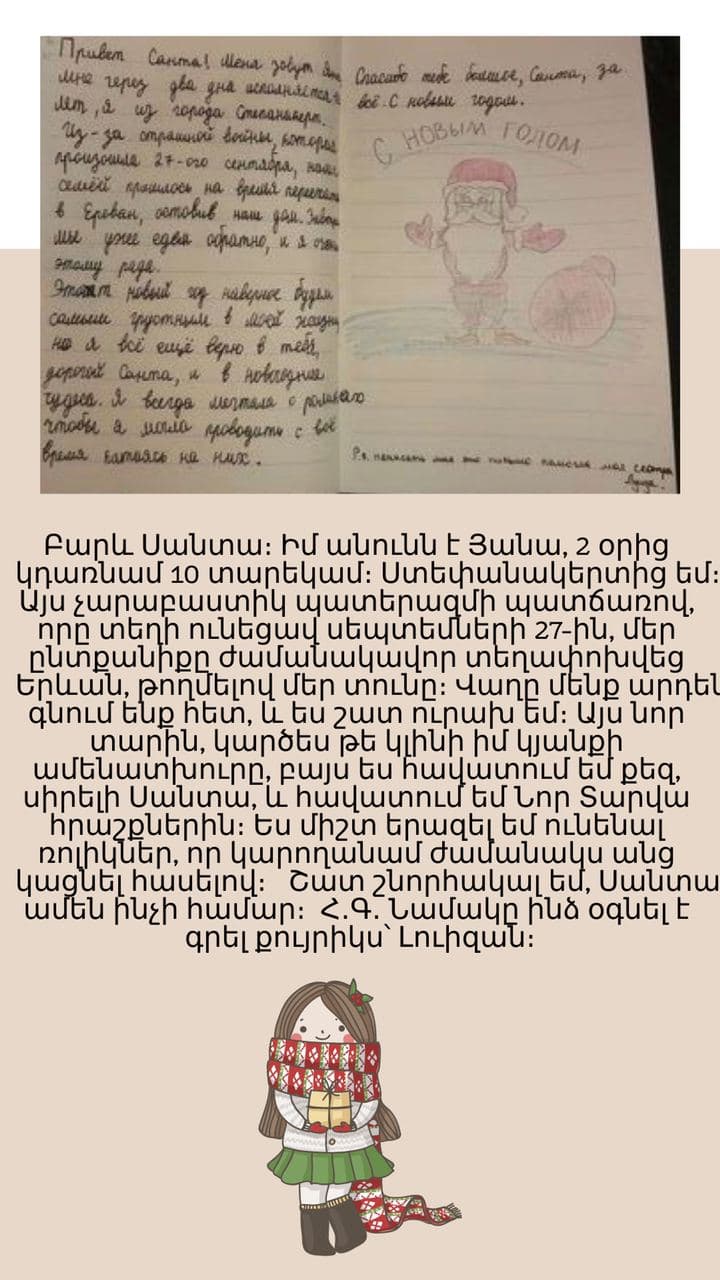 Привет Санта! Меня зовут Яна
мне через два дня исполняется
лет, я из города Степанакерт.
Из-за страшной войны, которая
произошла 27-ого сентября, наш
семьёй пришлось на время переехать
в Ереван, оставив наш дом. Завтра
мы уже едем обратно, и я очень
этому рада.
Этот новый год наверное будет
самым грустным в моей жизни
но я всё ещё верю в тебя,
дорогой Санта, и в новогодние
чудеса. Я всегда мечтала о роликах
чтобы я могла проводить с всё
время катаясь на них.
Спасибо тебе большое, Санта, за
всё. С новым годом.
С НОВЫМ ГОДОМ
P.s. написать мне это письмо помогла моя сестра
Луиза.
Բարև Սանտա։ Իմ անունն է Յանա, 2 օրից
կդառնամ 10 տարեկամ։ Ստեփանակերտից եմ։
Այս չարաբաստիկ պատերազմի պատճառով,
որը տեղի ունեցավ սեպտեմների 27-ին, մեր
ընտքանիքը ժամանակավոր տեղափոխվեց
Երևան, թողմելով մեր տունը։ Վաղը մենք արդեն
գնում ենք հետ, և ես շատ ուրախ եմ։ Այս նոր
տարին, կարծես թե կլինի իմ կյանքի
ամենատխուրը, բայս ես հավատում եմ քեզ,
սիրելի Սանտա, և հավատում եմ Նոր Տարվա
հրաշքներին։ Ես միշտ երազել եմ ունենալ
ռոլիկներ, որ կարողանամ ժամանակս անց
կացնել հասելով։ Շատ շնորհակալ եմ, Սանտա
ամեն ինչի համար։ Հ.Գ. Նամակը ինձ օգնել է
գրել քույրիկս՝ Լուիզան։